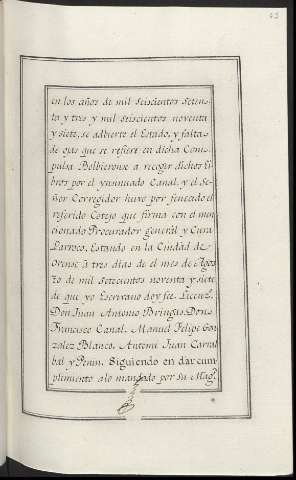 en los años de mil seiscientos seten-
ta y tres y mil seiscientos noventa
y siete, se advierte el Estado, y faltas
de ojas que se refiere en dicha Com-
pulsa Bolbieronse a recoger dichos Li-
bros por el Canal, y el Se-
ñor Corregidor huvo por fenecido el
referido Cotejo que firma con el men-
cionado Procurador general y Cura
Parroco, Estando en la Ciudad de
Orense à tres dias de el mes de Agos-
to de mil setecientos noventa y siete
de que yo Escrivano doy fee. Licenz.
Don Juan Antonio Bringas. Don
Francisco Canal. Manuel Felipe Gon
zalez Blanco. Antemi Juan Carva
bal y Penin. Siguiendo en dar cum-
plimiento alo mandado por su Mag.